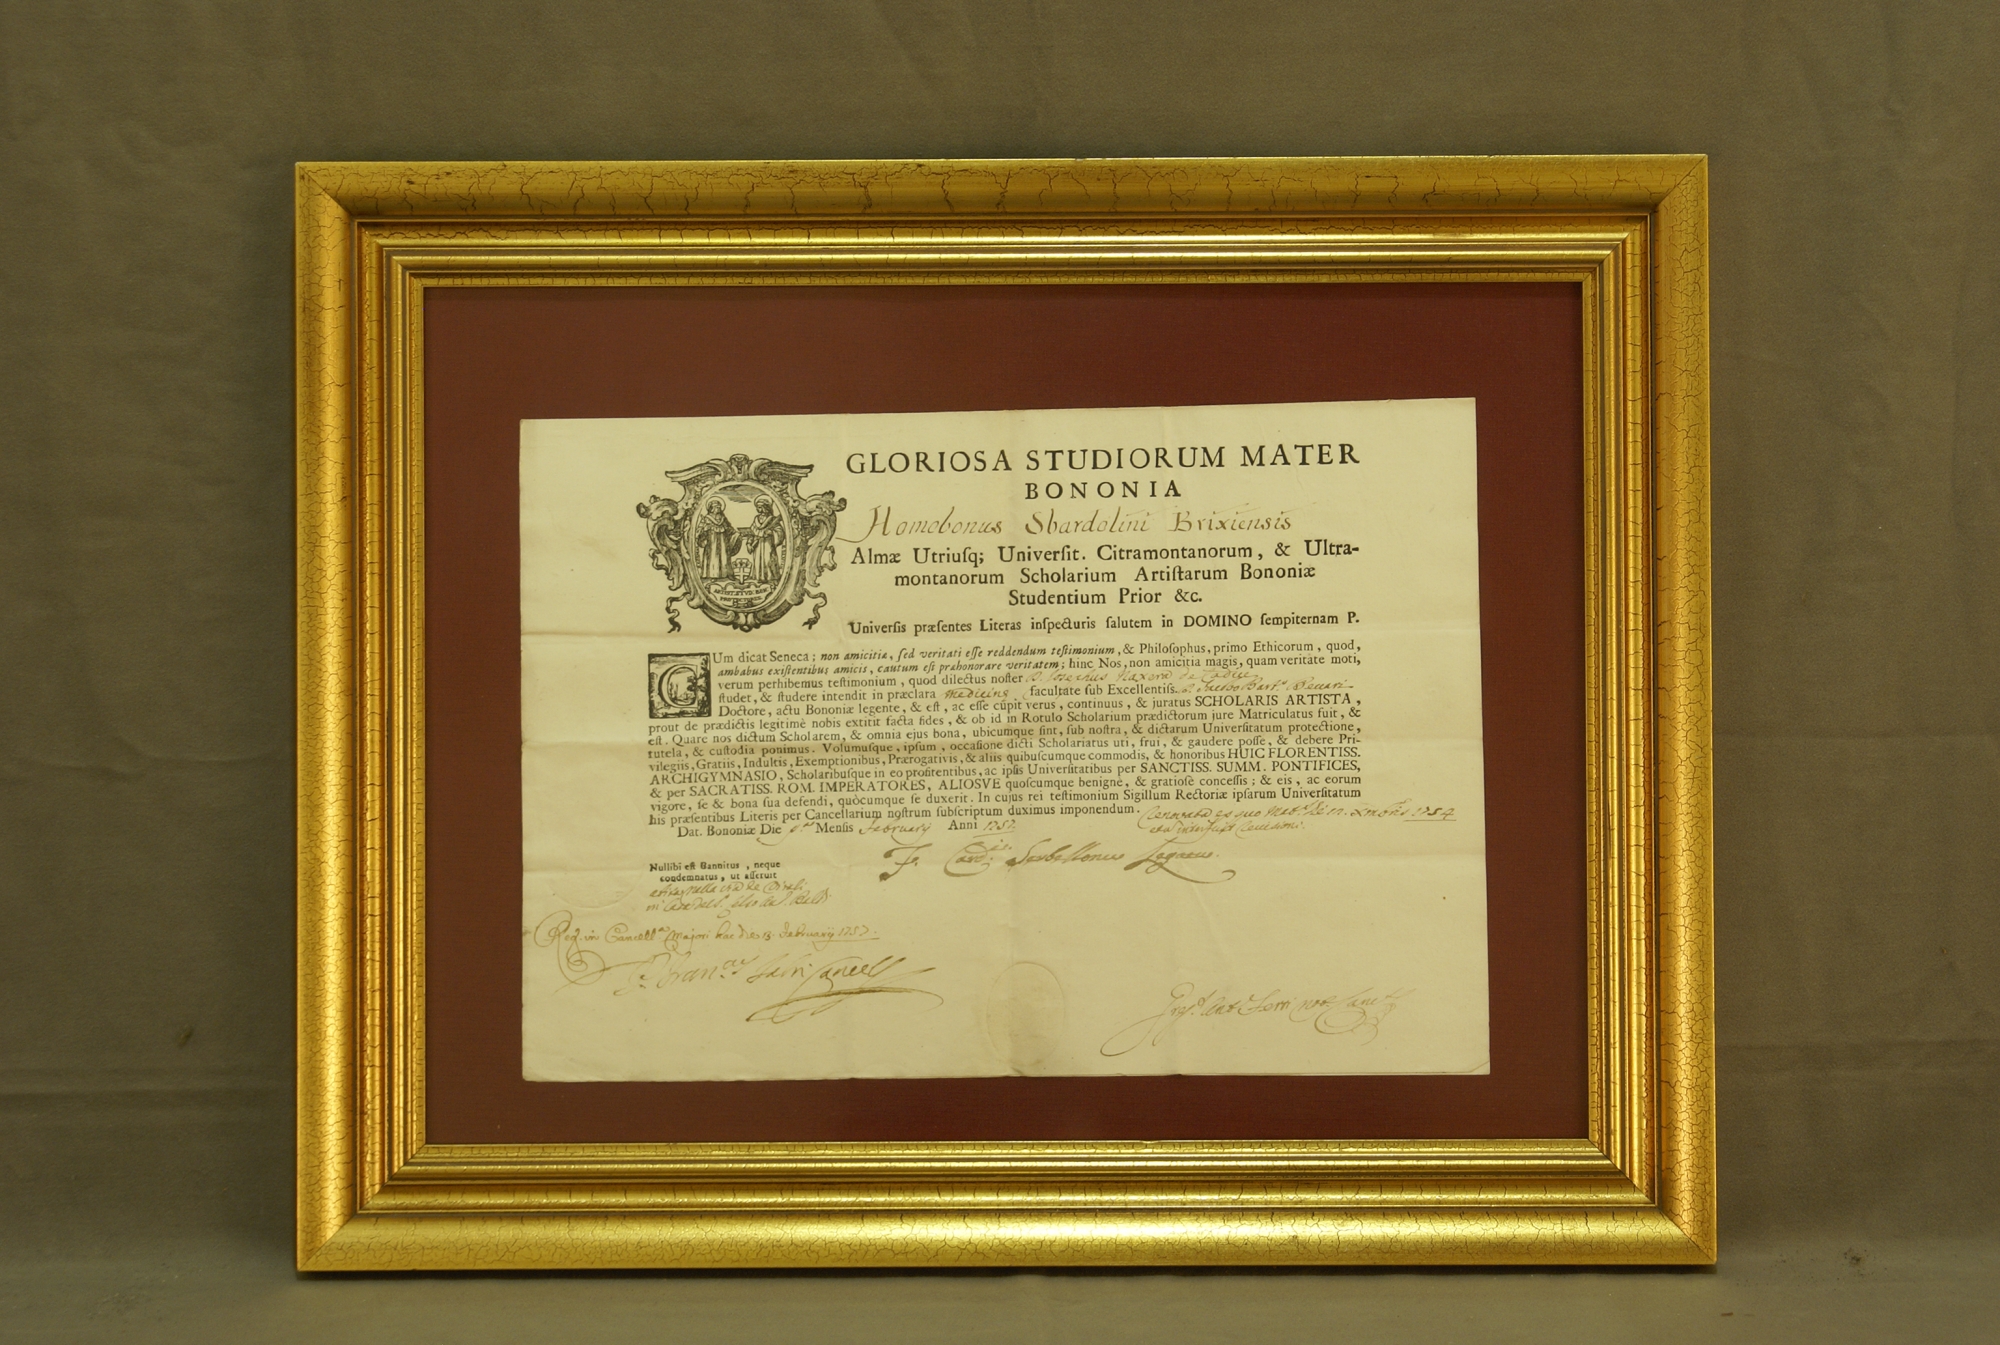 GLORIOSA STUDIORUM MATER
BONONIA
Homobonus Sbardolini Brixiensis
Almæ Utriuſq; Universit. Citramontanorum, & Ultra-
montanorum Scholarium Artiſtarum Bononiæ
Studentium Prior &c.
Univerſis præſentes Literas inſpecturis ſalutem in DOMINO ſempiternam P.
CUm dicat Seneca; non amicitiæ, ſed veritati eſſe reddendum teſtimonium, & Philoſophus, primo Ethicorum, quod,
ambabus exiſtentibus amicis, cautum eſt præhonorare veritatem; hinc Nos, non amicitia magis, quam veritate moti,
verum perhibemus teſtimonium, quod dilectus noſter D. Josephus
ſtudet, & ſtudere intendit in præclara Medicinæ facultate ſub Excellentiſs. D. Jacobo Bart. Beccari
Doctore, actu Bononiæ legente, & eſt, ac eſſe cupit verus, continuus, & juratus SCHOLARIS ARTISTA,
prout de prædictis legitimè nobis extitit facta fides, & ob id in Rotulo Scholarium prædictorum jure Matriculatus fuit, &
eſt. Quare nos dictum Scholarem, & omnia ejus bona, ubicumque ſint, ſub noſtra, & dictarum Univerſitatum protectione,
tutela, & cuſtodia ponimus. Volumuſque, ipſum, occaſione dicti Scholariatus uti, frui, & gaudere poſſe, & debere Pri-
vilegiis, Gratiis, Indultis, Exemptionibus, Prærogativis, & aliis quibuſcumque commodis, & honoribus HUIC FLORENTISS.
ARCHIGYMNASIO, Scholaribuſque in eo profitentibus, ac ipſis Univerſitatibus per SANCTISS. SUMM. PONTIFICES,
& per SACRATISS. ROM. IMPERATORES, ALIOSVE quoſcumque benignè, & gratioſè conceſſis; & eis, ac eorum
vigore, ſe & bona ſua defendi, quòcumque ſe duxerit. In cujus rei teſtimonium Sigillum Rectoriæ ipſarum Univerſitatum
his præſentibus Literis per Cancellarium noſtrum ſubſcriptum duximus imponendum.
Dat. Bononiæ Die Menſis February Anni 1757.
Card. Serbellonus Legatus.
Nullibi eſt Bannitus, neque
condemnatus, ut aſſeruit
Reg. in Cancell.a Majori hac die 13. February 1757.